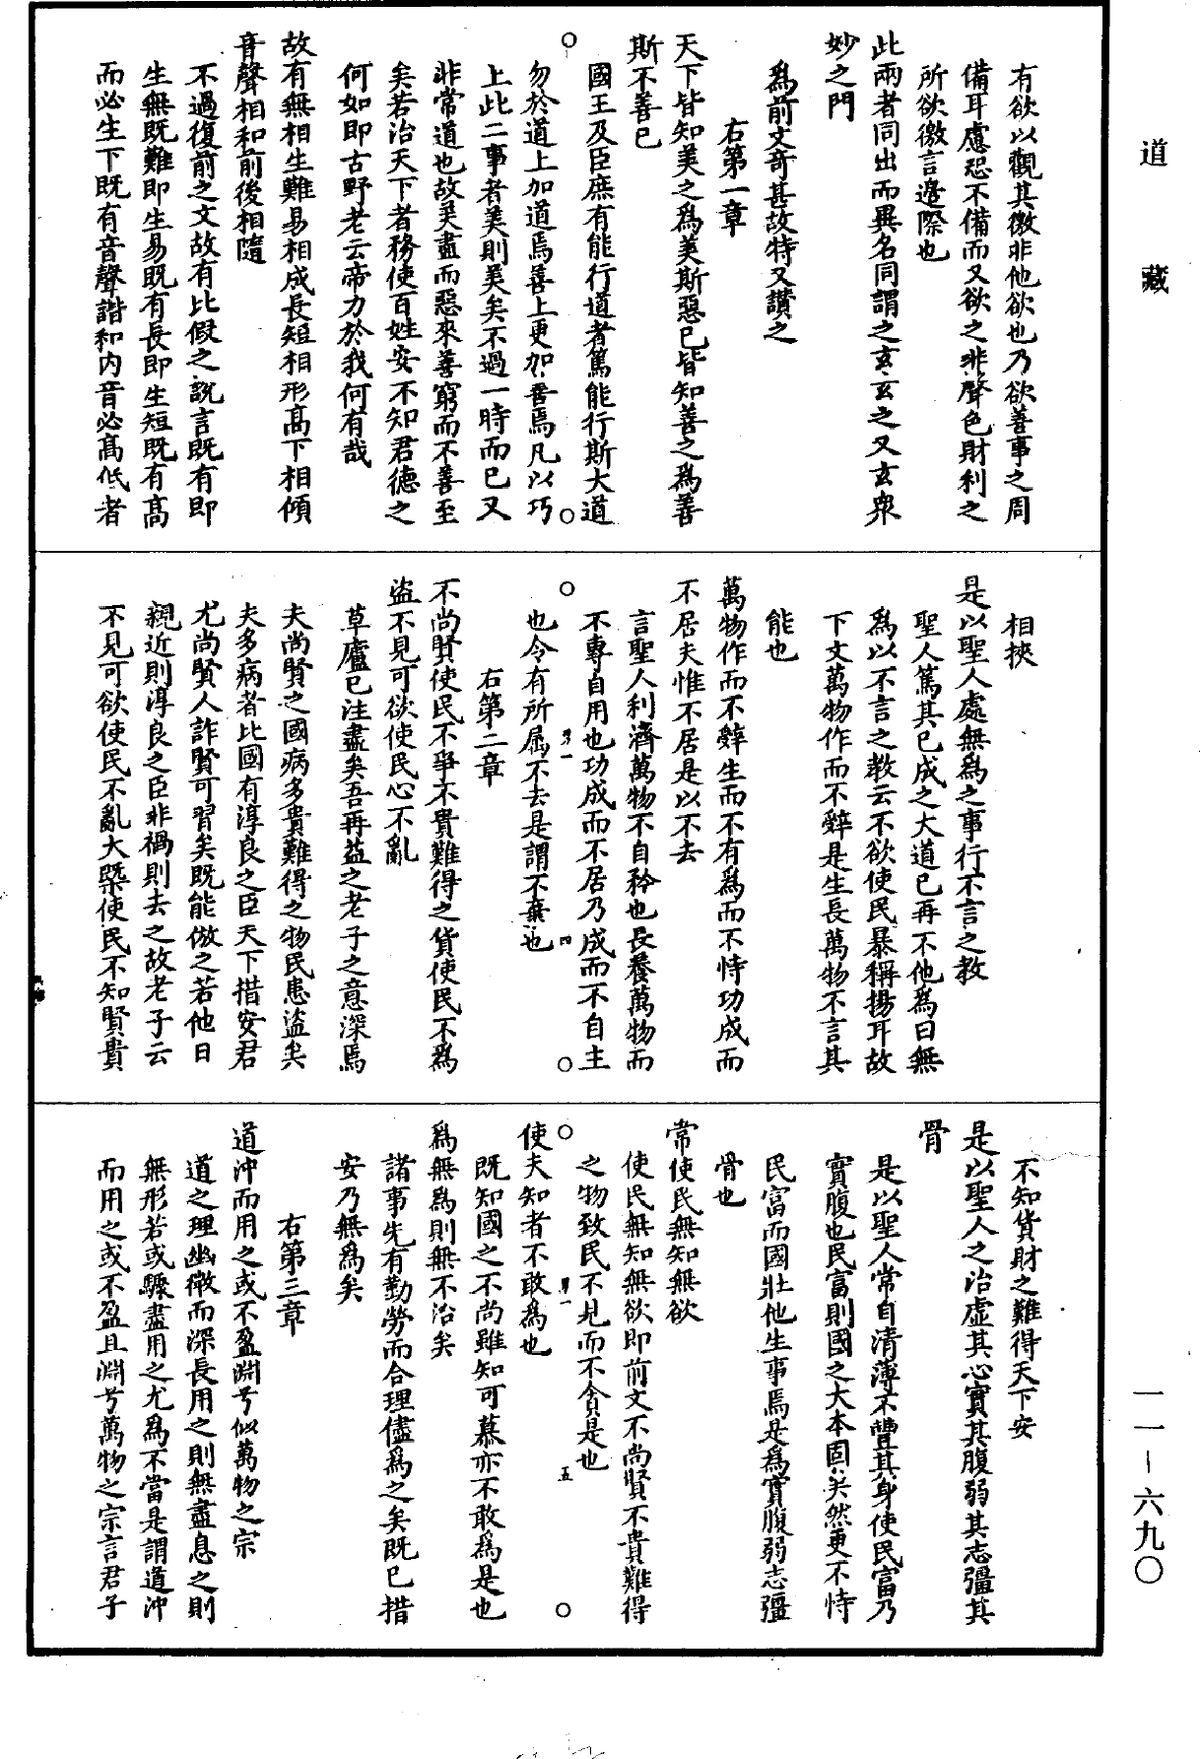 道藏
有欲以觀其徼非他欲也乃欲善事之周
備耳慮恐不備而又欲之非聲色財利之
所欲徼言邊際也
此兩者同出而異名同謂之玄玄之又玄衆
妙之門
爲前文奇甚故特又讚之
右第一章
天下皆知美之爲美斯惡已皆知善之爲善
斯不善已
國王及臣庶有能行道者篤能行斯大道
勿於道上加道焉善上更加善焉凡以巧
上此二事者美則美矣不過一時而已又
非常道也故美盡而惡來善窮而不善至
矣若治天下者務使百姓安不知君德之
何如即古野老云帝力於我何有哉
故有無相生難易相成長短相形高下相傾
音聲相和前後相隨
不過復前之文故有比假之說言既有即
生無既難即生易既有長即生短既有高
而必生下既有音聲諧和内音必高低者
相挾
是以聖人處無爲之事行不言之教
聖人篤其已成之大道已再不他爲曰無
爲以不言之教云不欲使民暴稱揚耳故
下文萬物作而不辭是生長萬物不言其
能也
萬物作而不辭生而不有爲而不恃功成而
不居夫惟不居是以不去
言聖人利濟萬物不自矜也長養萬物而
不專自用也功成而不居乃成而不自主
也令有所屬不去是謂不棄也
右第二章
不尚賢使民不爭不貴難得之貨使民不爲
盜不見可欲使民心不亂
草廬已注盡矣吾再益之老子之意深焉
夫尚賢之國病多貴難得之物民患盜矣
夫多病者比國有淳良之臣天下措安君
尤尚賢人詐賢可習矣既能倣之若他日
親近則淳良之臣非禍則去之故老子云
不見可欲使民不亂大槩使民不知賢貴
四
不知貨財之難得天下安
是以聖人之治虛其心實其腹弱其志彊其
骨
是以聖人常自清薄不豐其身使民富乃
實腹也民富則國之大本固矣然更不恃
民富而國壯他生事焉是爲實腹弱志彊
骨也
常使民無知無欲
使民無知無欲即前文不尚賢不貴難得
之物致民不見而不貪是也
使夫知者不敢爲也
既知國之不尚雖知可慕亦不敢爲是也
爲無爲則無不治矣
諸事先有勤勞而合理儘爲之矣既已措
安乃無爲矣
右第三章
道沖而用之或不盈淵兮似萬物之宗
道之理幽微而深長用之則無盡息之則
無形若或驟盡用之尤爲不當是謂道沖
而用之或不盈且淵兮萬物之宗言君子
五
一一－六九〇